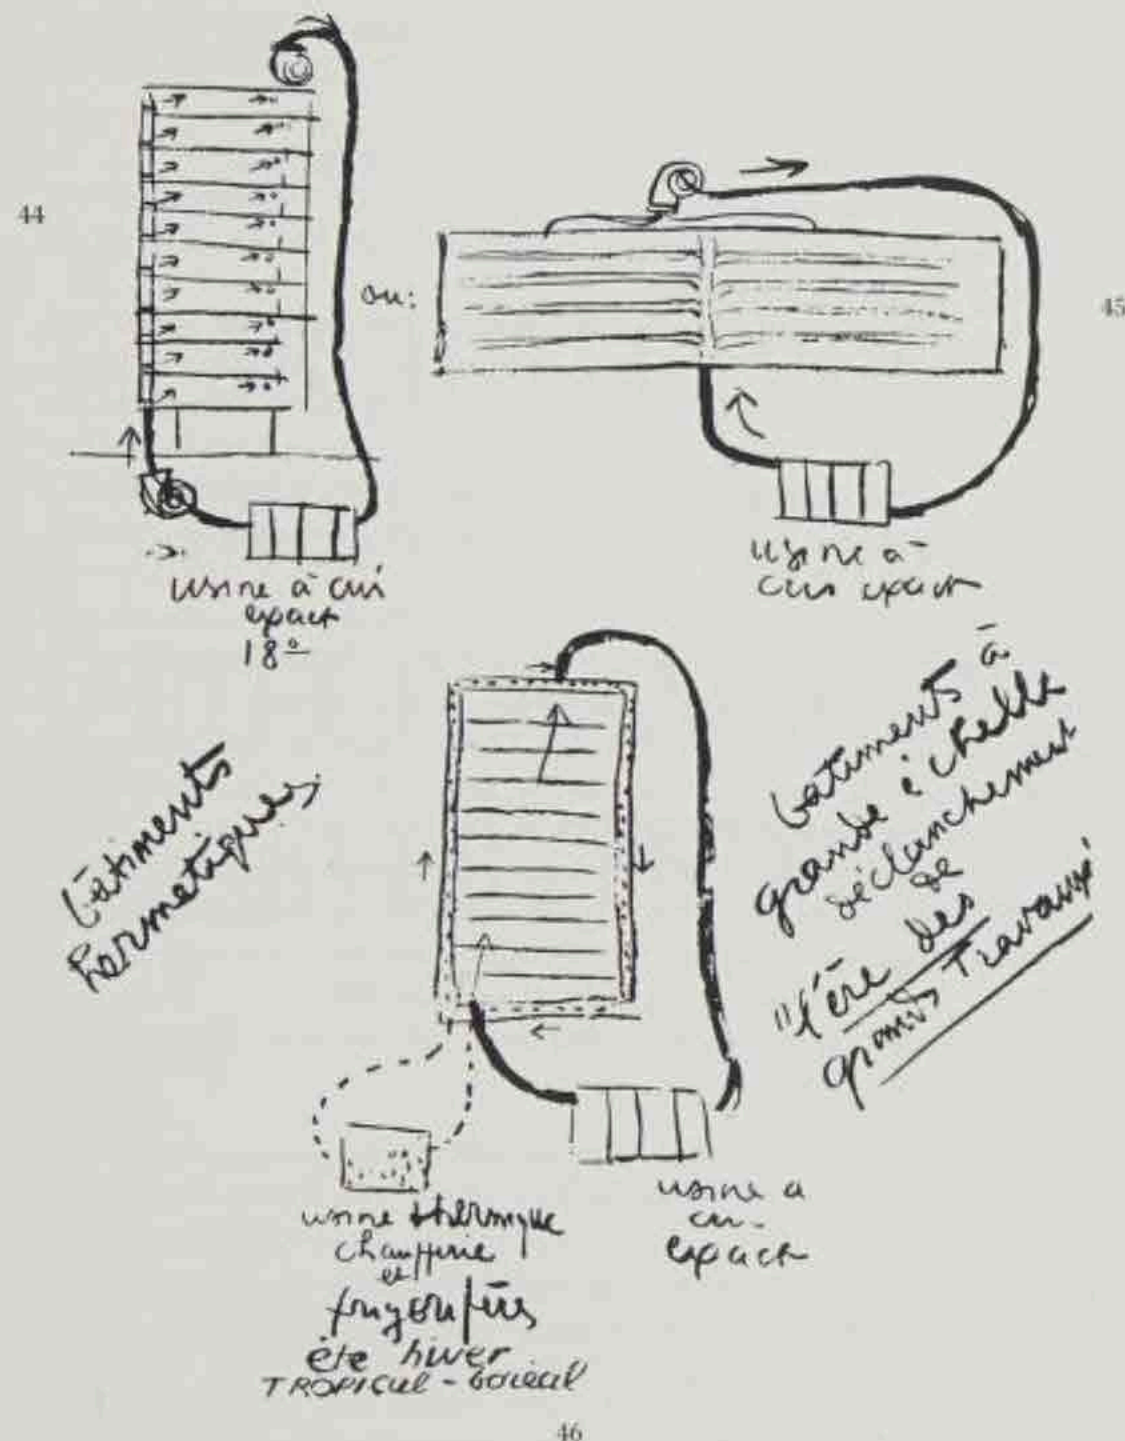 44
ou:
45
usine à air
exact
18°
usine à
air exact
bâtiments
hermétiques
bâtiments à
grande échelle
déclanchement
de
"l'ère des
grands Travaux"
usine thermique
chaufferie
et
été hiver
TROPICAL - boréal
usine a
air
exact
46